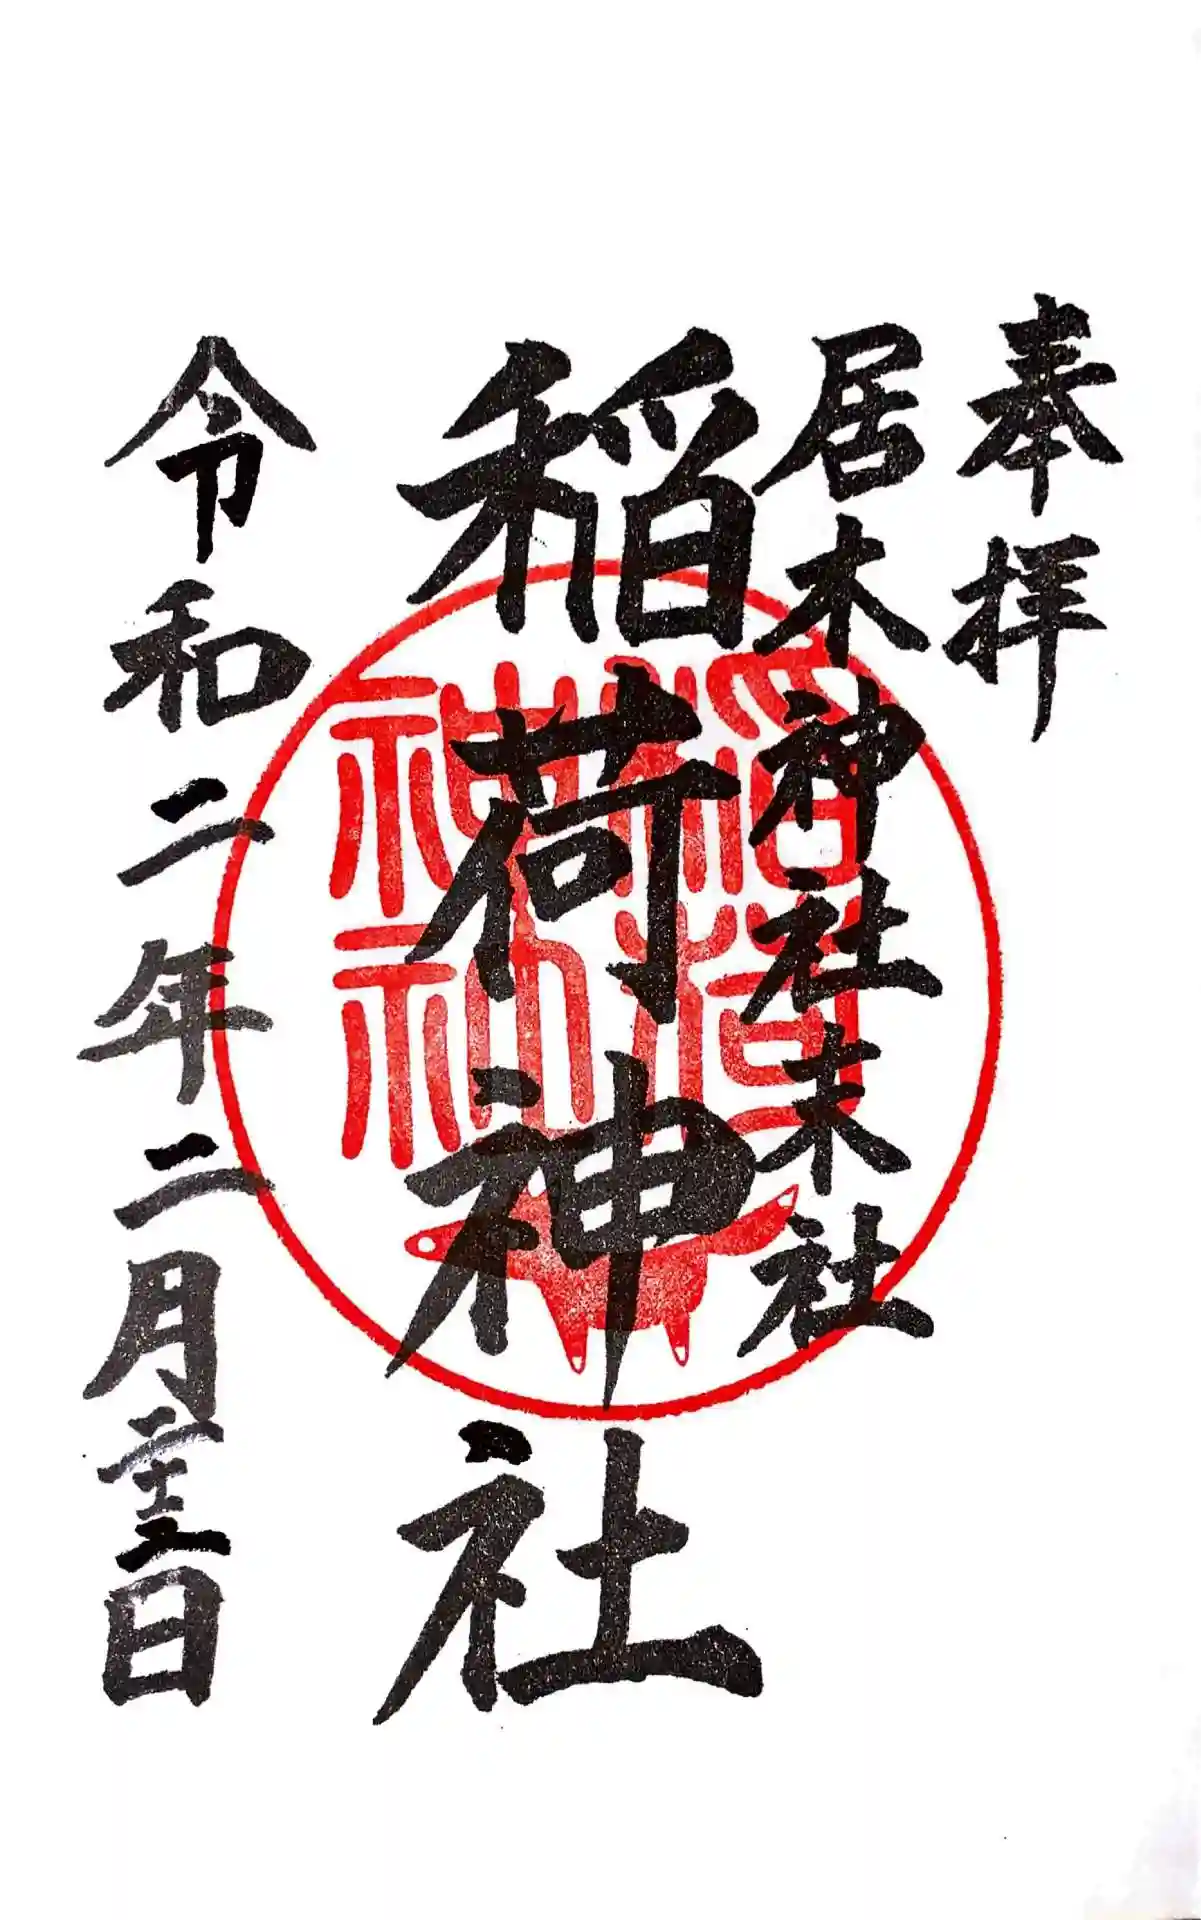 奉拝
居木神社末社
稲荷神社
令和二年二月二十三日